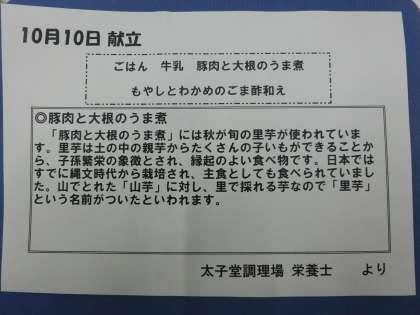 10月10日 献立
ごはん 牛乳 豚肉と大根のうま煮
もやしとわかめのごま酢和え
◎豚肉と大根のうま煮
「豚肉と大根のうま煮」には秋が旬の里芋が使われていま
す。里芋は土の中の親芋からたくさんの子いもができることか
ら、子孫繁栄の象徴とされ、縁起のよい食べ物です。日本では
すでに縄文時代から栽培され、主食としても食べられていまし
た。山でとれた「山芋」に対し、里で採れる芋なので「里芋」
という名前がついたといわれます。
太子堂調理場 栄養士 より